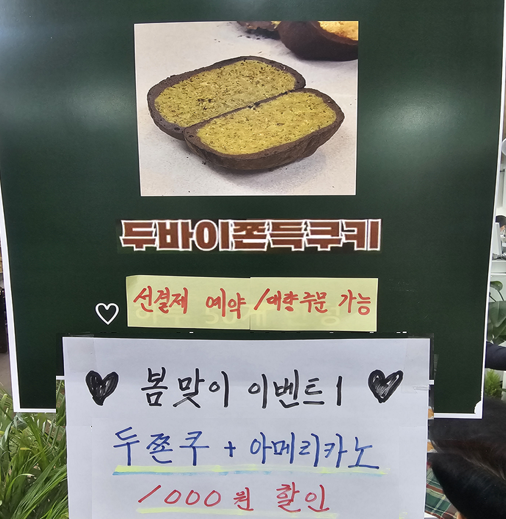 두바이쫀득쿠키
선결제 예약 / 대량주문 가능
봄맞이 이벤트!
두쫀쿠 + 아메리카노
1000원 할인